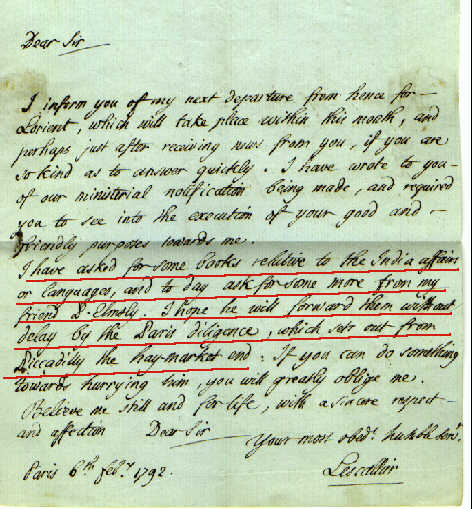 Dear Sir
I inform you of my next departure from hence for
Lorient, which will take place within this month, and
perhaps just after receiving news from you, if you are
so kind as to answer quickly. I have wrote to you
of our ministerial notification being made, and required
you to see into the execution of your good and
friendly purposes towards me.
I have asked for some books relative to the India affairs
or languages, and to day ask for some more from my
friend P. Elmsly. I hope he will forward them without
delay by the Paris diligence, which sets out from
Piccadilly the hay-market end. If you can do something
towards hurrying him, you will greatly oblige me.
Believe me still and for life, with a sincere respect
and affection Dear Sir
Your most obedt. humble servt.
Paris 6th feby. 1792.
Lescallier